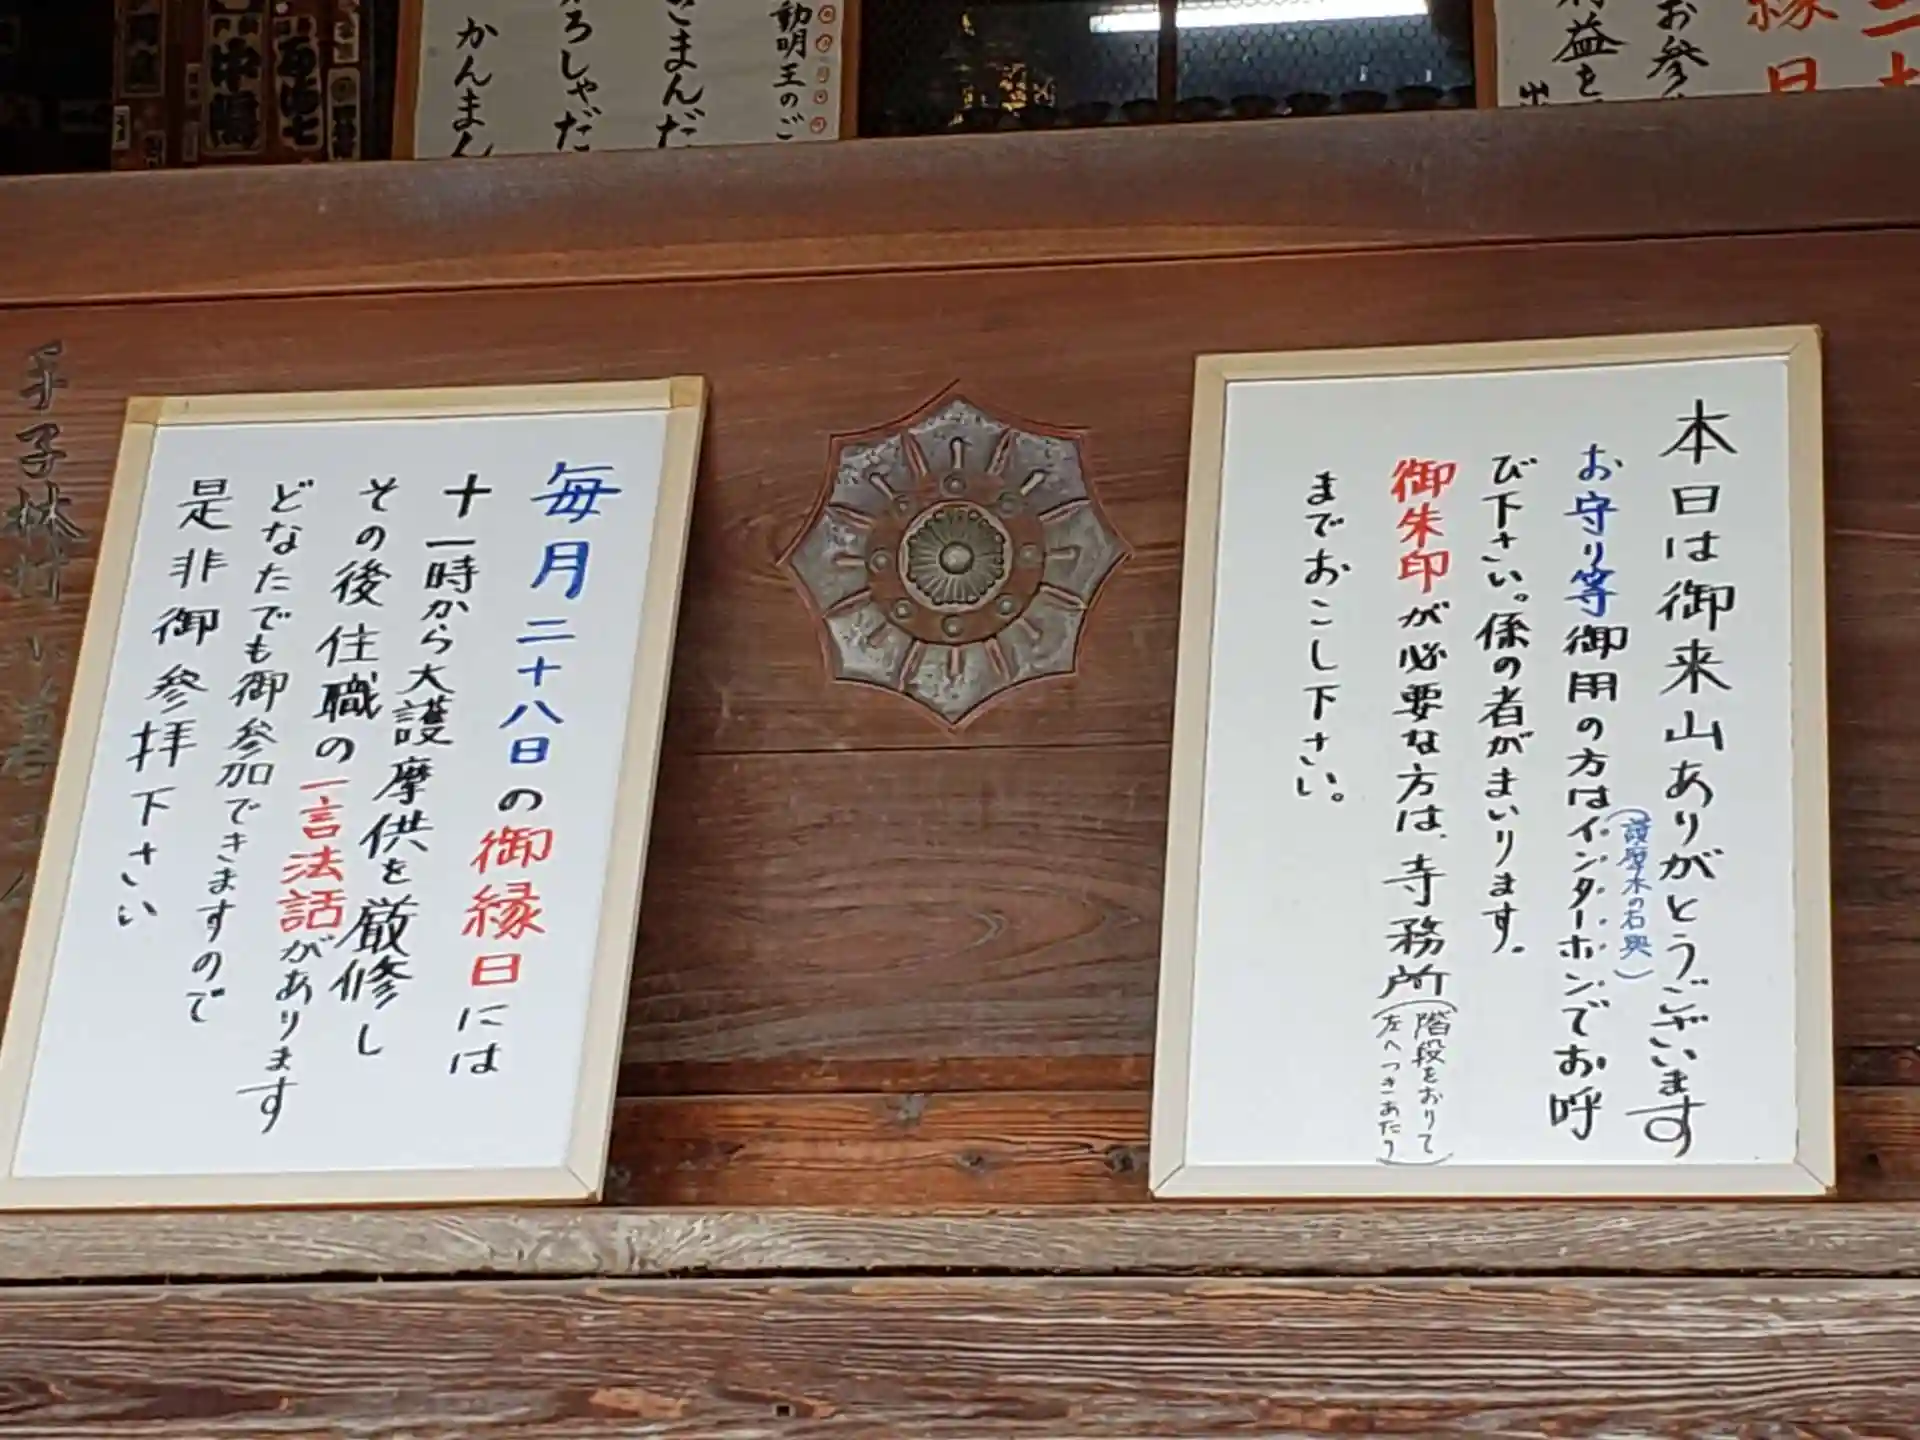 本日は御来山ありがとうございます
お守り等御用の方はインターホンでお呼
(護摩木の右奥)
び下さい。係の者がまいります。
御朱印が必要な方は、寺務所(階段をおりて
左へつきあたり)
までおこし下さい。
毎月二十八日の御縁日には
十一時から大護摩供を厳修し
その後住職の一言法話があります
どなたでも御参加できますので
是非御参拝下さい
縁日
お参
益を
動明王のご
まんだ
ろしゃだ
かんまん